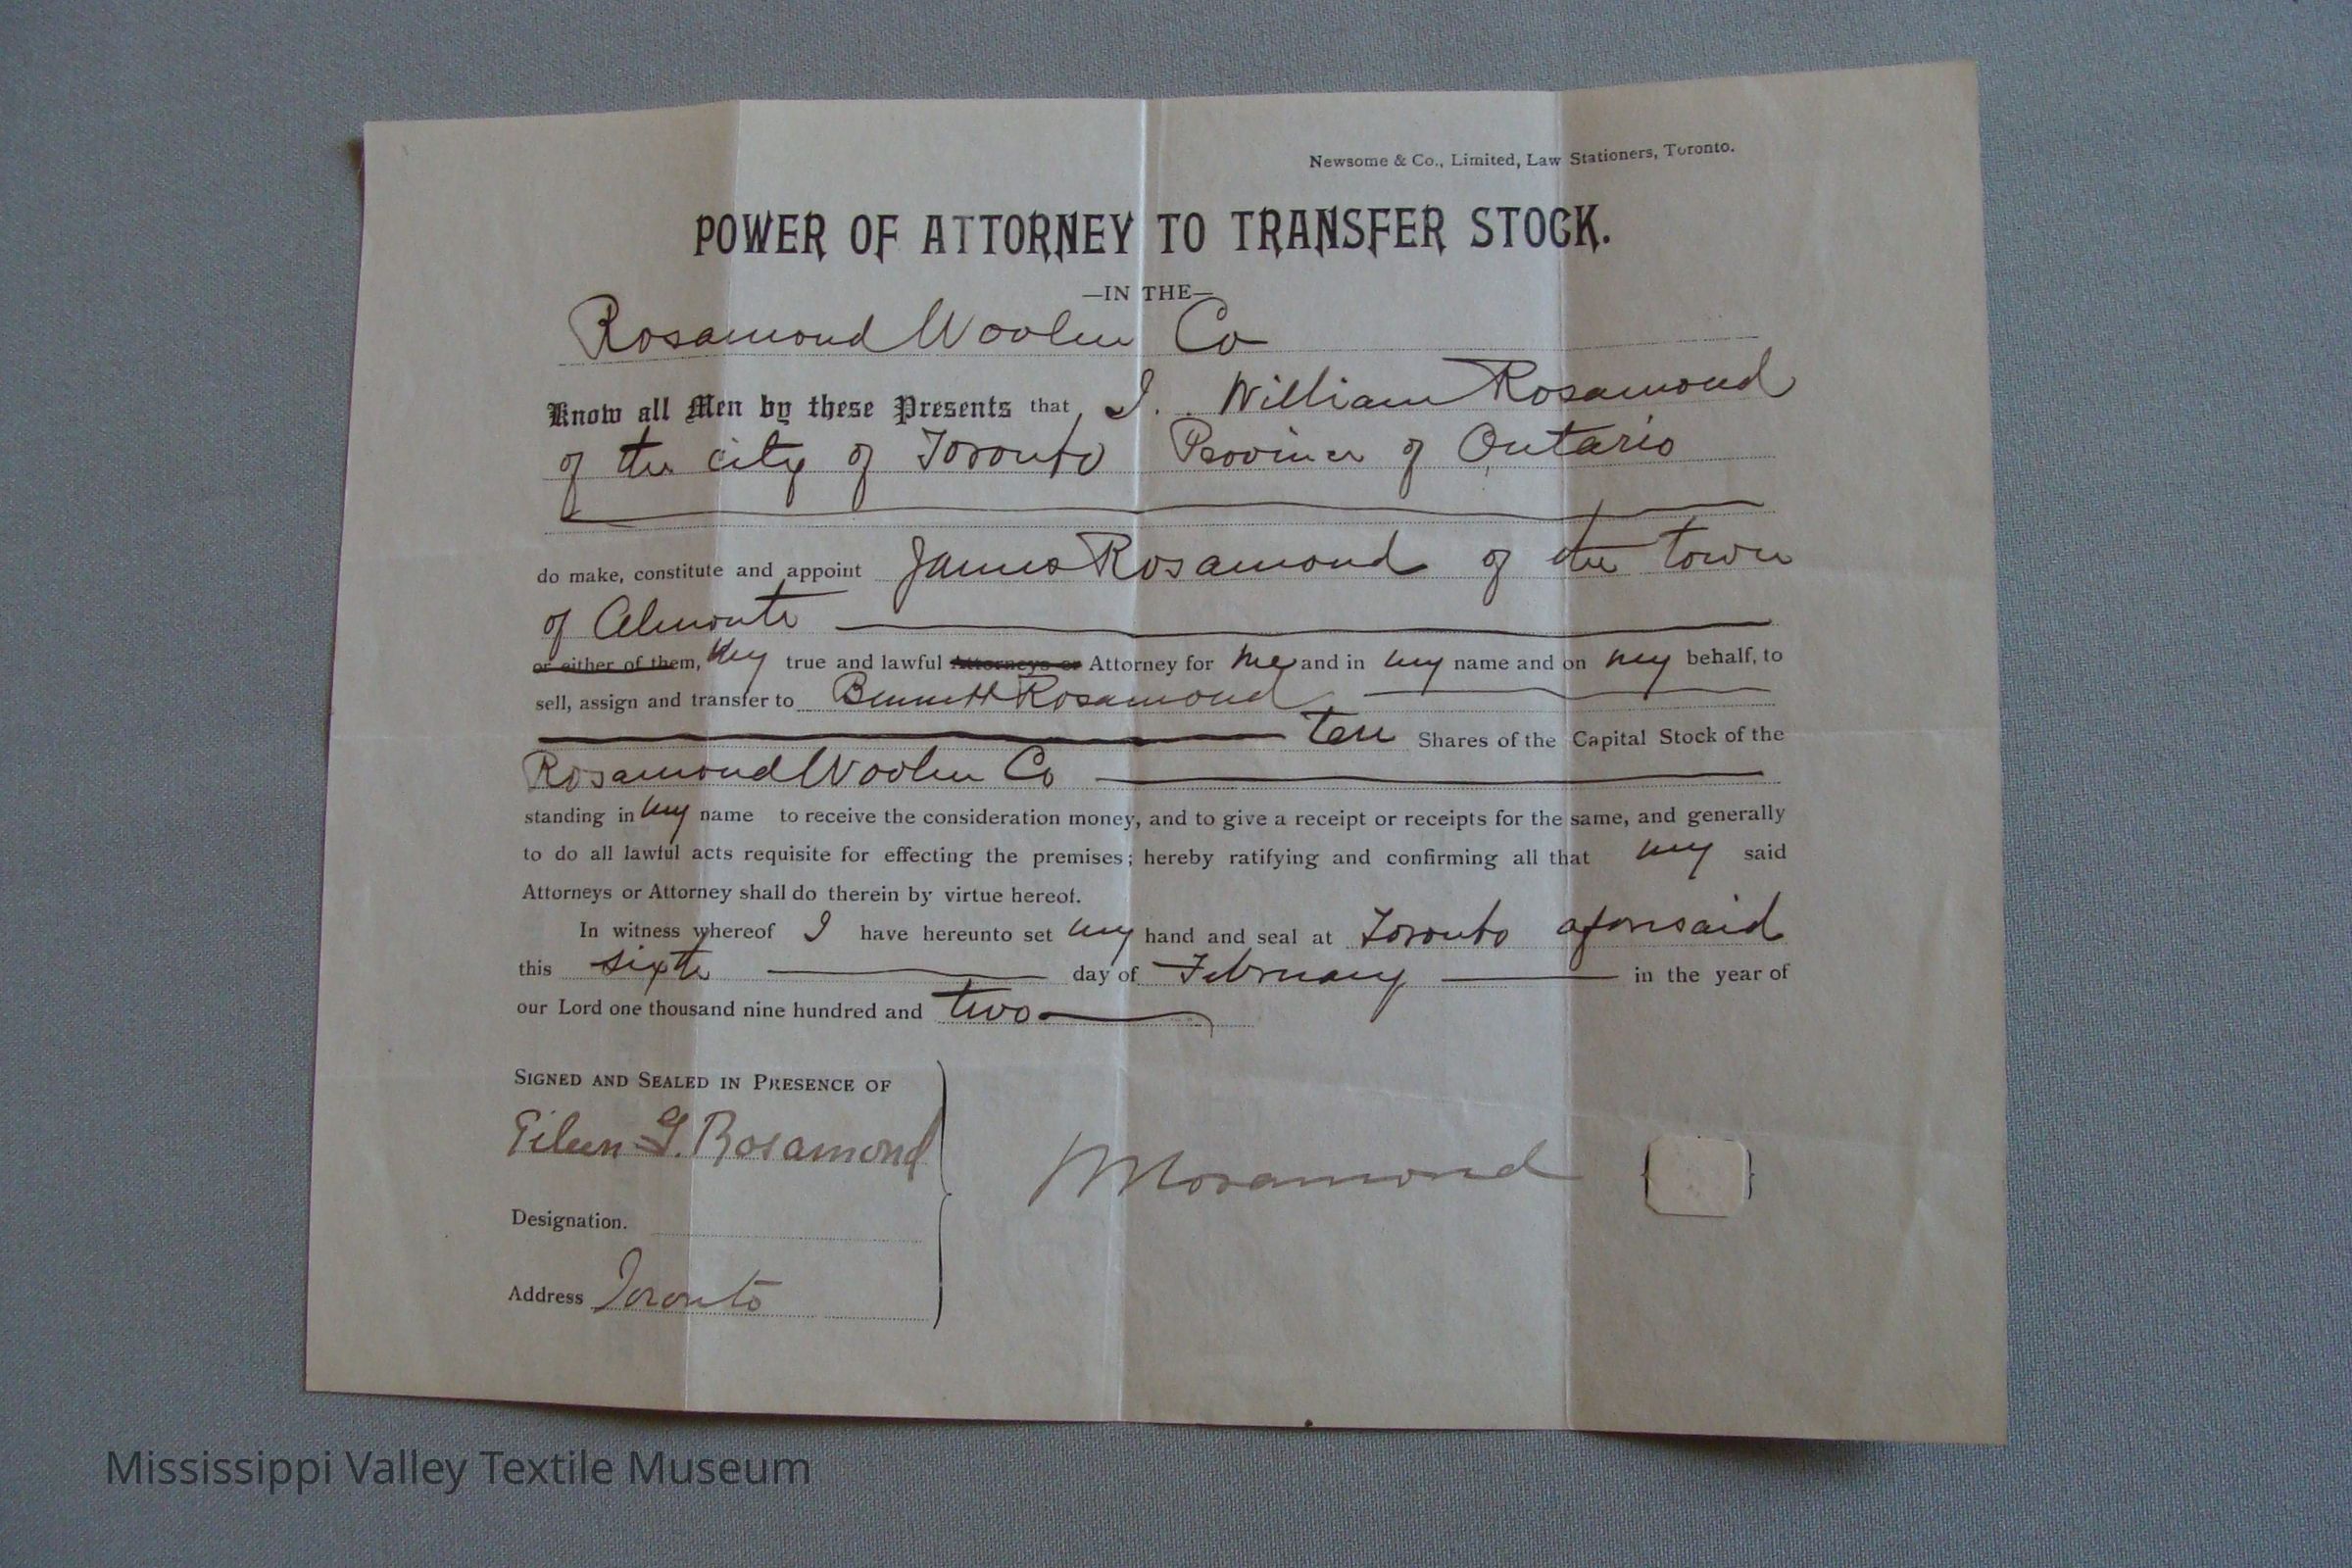 Newsome & Co., Limited, Law Stationers, Toronto.
POWER OF ATTORNEY TO TRANSFER STOCK.
—IN THE—
Rosamond Woolen Co
Know all Men by these Presents that I. William Rosamond
of the city of Toronto Province of Ontario
do make, constitute and appoint James Rosamond of the town
of Almonte
or either of them, my true and lawful Attorneys or Attorney for me and in my name and on my behalf, to
sell, assign and transfer to Bennett Rosamond
ten Shares of the Capital Stock of the
Rosamond Woolen Co
standing in my name to receive the consideration money, and to give a receipt or receipts for the same, and generally
to do all lawful acts requisite for effecting the premises; hereby ratifying and confirming all that my said
Attorneys or Attorney shall do therein by virtue hereof.
In witness whereof I have hereunto set my hand and seal at Toronto aforesaid
this sixth day of February in the year of
our Lord one thousand nine hundred and two
SIGNED AND SEALED IN PRESENCE OF
Eileen G. Rosamond
WRosamond
Designation.
Address Toronto
Mississippi Valley Textile Museum